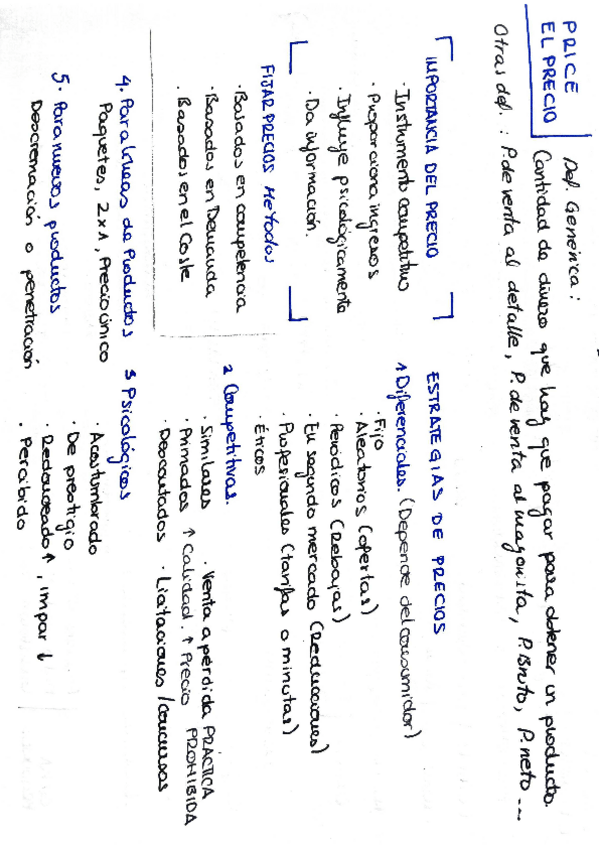 PRICE
EL PRECIO
Def. Genérica:
Cantidad de dinero que hay que pagar para obtener un producto.
Otras def.: P. de venta al detalle, P. de venta al mayorista, P. Bruto, P. neto ...
IMPORTANCIA DEL PRECIO
· Instrumento competitivo
· Proporciona ingresos
· Influye psicológicamente
· Da información.
FIJAR PRECIOS Métodos
· Basados en competencia
· Basados en Demanda
· Basados en el Coste
ESTRATEGIAS DE PRECIOS
1 Diferenciales. (Depende del consumidor)
· Fijo
· Aleatorios (ofertas)
· Periódicos (Rebajas)
· En segundo mercado (Reducciones)
· Profesionales (tarifas o minutas)
· Éticos
2 Competitivas.
· Similares
· Primados ↑ Calidad. ↑ Precio
· Descontados
· Venta a pérdida PRÁCTICA PROHIBIDA
· Licitaciones / concursos
3 Psicológicos
· Acostumbrado
· De prestigio
· Redondeado ↑, impar ↓
· Percibido
4. Para líneas de Productos
Paquetes, 2x1, Precio único
5. Para nuevos productos
Descremación o penetración